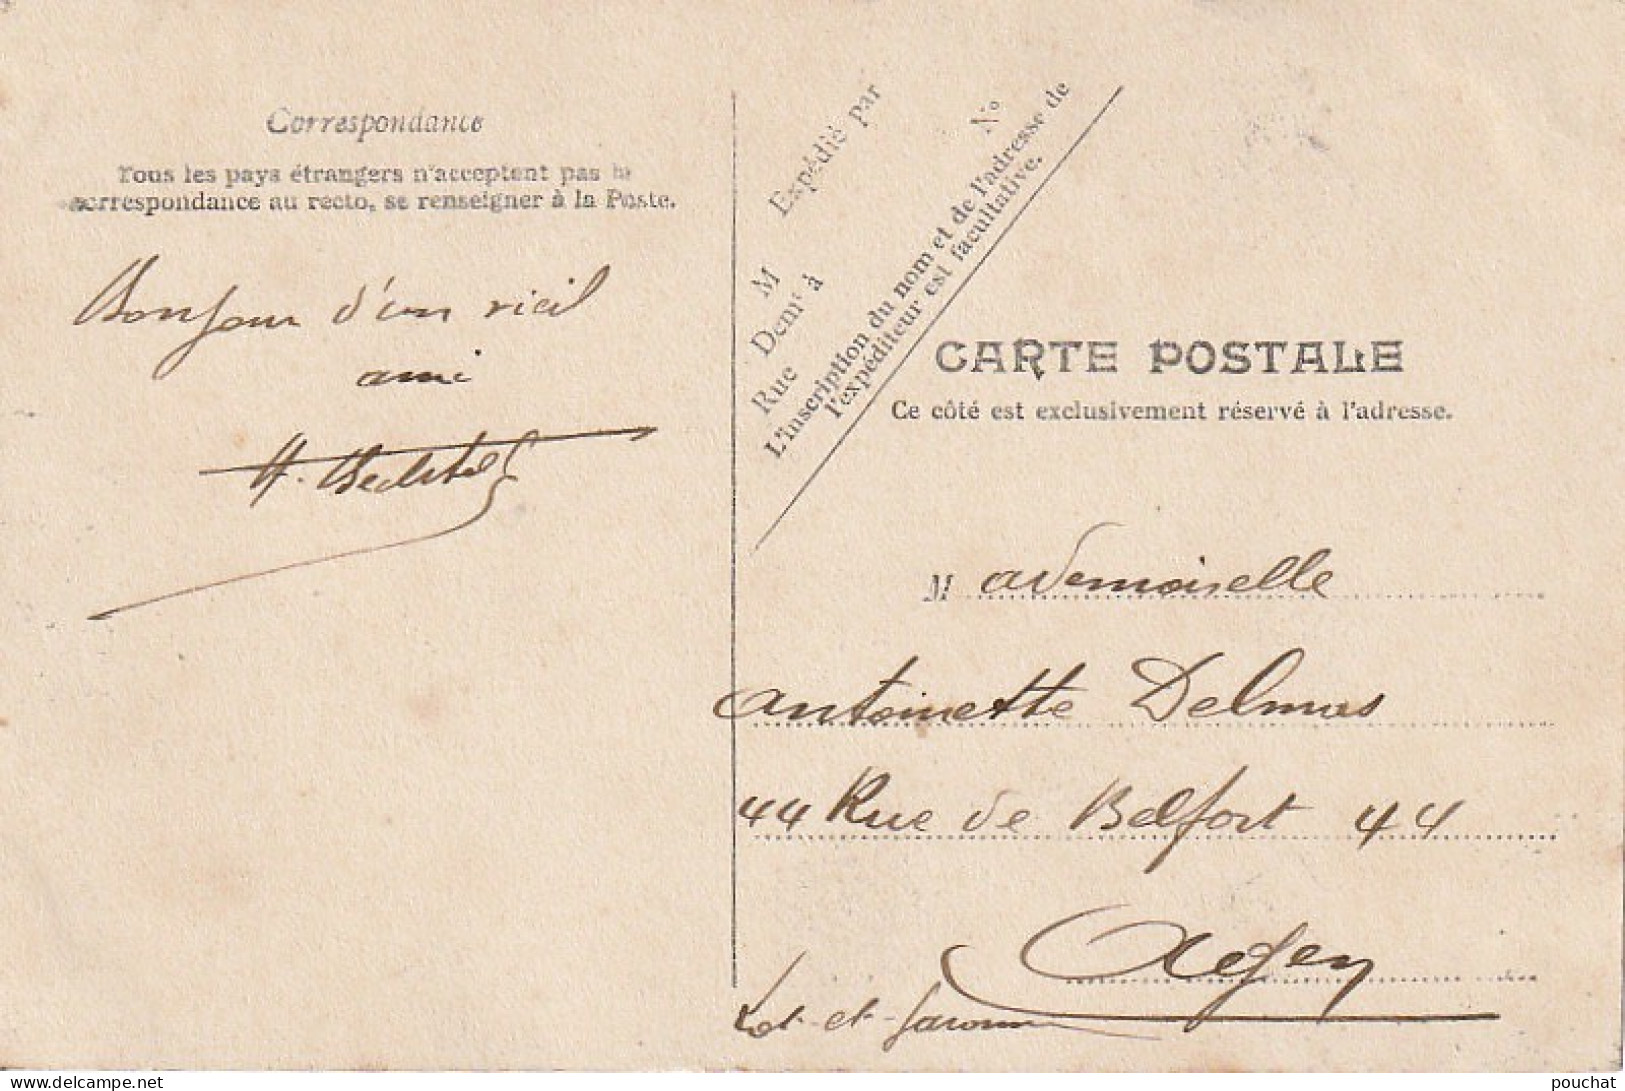 Correspondance
Tous les pays étrangers n'acceptent pas la
correspondance au recto, se renseigner à la Poste.
Bonjour d'un vieil
ami
H.
Expédié par
M
Demt à
Rue
No
L'inscription du nom et de l'adresse de
l'expéditeur est facultative.
CARTE POSTALE
Ce côté est exclusivement réservé à l'adresse.
Mademoiselle
Antoinette Delmas
44 Rue de Belfort 44
Agen
Lot-et-Garonne
pouchat